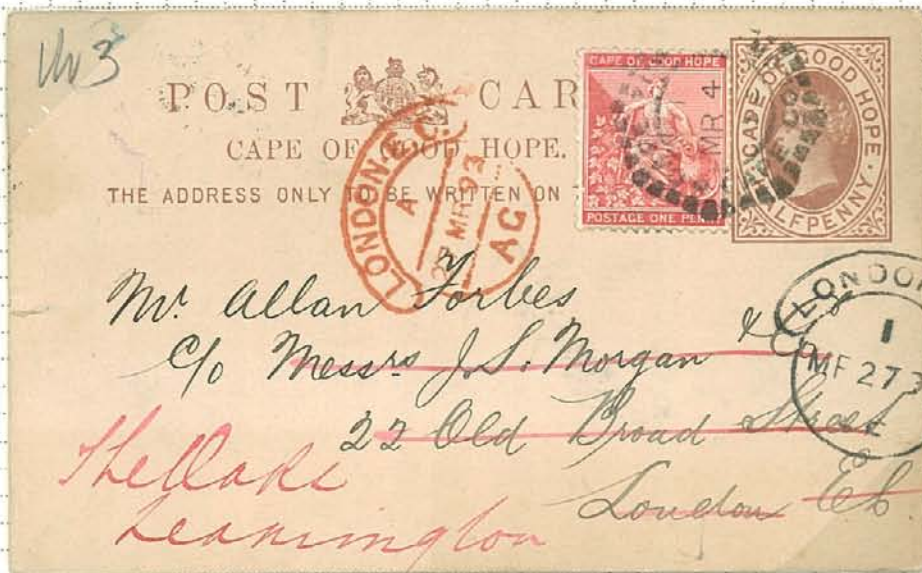 POST CAR
CAPE OF GOOD HOPE.
THE ADDRESS ONLY TO BE WRITTEN ON
CAPE OF GOOD HOPE
POSTAGE ONE PENNY
CAPE OF GOOD HOPE.
HALFPENNY
MR 4
LONDON E.C.
A
27 MR 93
AG
LONDON
1
MR 27
Mr Allan Forbes
c/o Messrs J. S. Morgan & Co
22 Old Broad Street
London EC
The Oaks
Leamington